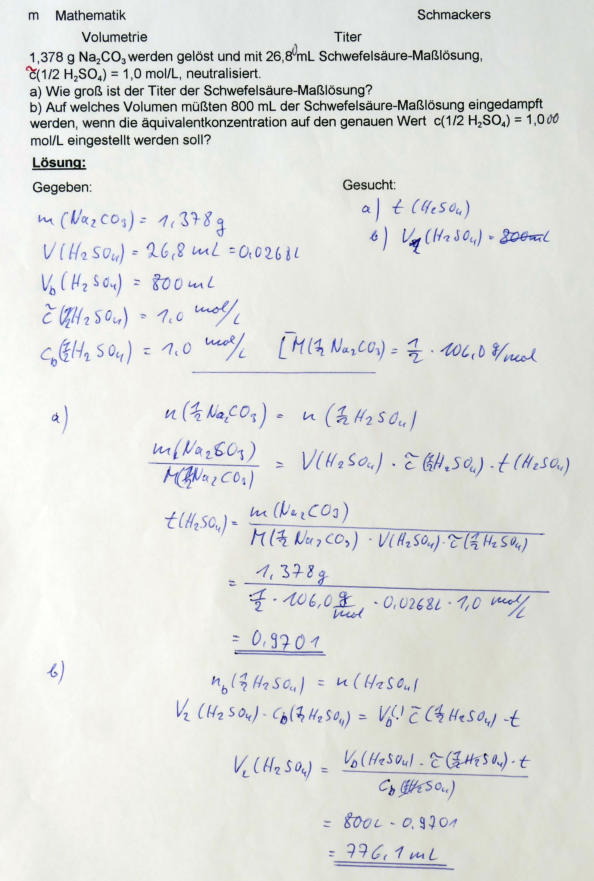 m Mathematik Schmackers
Volumetrie Titer
1,378 g Na₂CO₃ werden gelöst und mit 26,80 mL Schwefelsäure-Maßlösung,
c̃(1/2 H₂SO₄) = 1,0 mol/L, neutralisiert.
a) Wie groß ist der Titer der Schwefelsäure-Maßlösung?
b) Auf welches Volumen müßten 800 mL der Schwefelsäure-Maßlösung eingedampft
werden, wenn die äquivalentkonzentration auf den genauen Wert c(1/2 H₂SO₄) = 1,000
mol/L eingestellt werden soll?
Lösung:
Gegeben: Gesucht:
m(Na₂CO₃) = 1,378g a) t(H₂SO₄)
V(H₂SO₄) = 26,8 mL = 0,0268L b) V₂(H₂SO₄) = 800mL
V_b(H₂SO₄) = 800mL
c̃(1/2 H₂SO₄) = 1,0 mol/L
c_b(1/2 H₂SO₄) = 1,0 mol/L [M(1/2 Na₂CO₃) = 1/2 · 106,0 g/mol
a) n(1/2 Na₂CO₃) = n(1/2 H₂SO₄)
m(Na₂CO₃)/M(1/2 Na₂CO₃) = V(H₂SO₄) · c̃(1/2 H₂SO₄) · t(H₂SO₄)
t(H₂SO₄) = m(Na₂CO₃)/M(1/2 Na₂CO₃) · V(H₂SO₄) · c̃(1/2 H₂SO₄)
= 1,378g / 1/2 · 106,0 g/mol · 0,0268L · 1,0 mol/L
= 0,9701
b) n_b(1/2 H₂SO₄) = n(H₂SO₄)
V₂(H₂SO₄) · c_b(1/2 H₂SO₄) = V_b · c̃(1/2 H₂SO₄) · t
V₂(H₂SO₄) = V_b(H₂SO₄) · c̃(1/2 H₂SO₄) · t / c_b(1/2 H₂SO₄)
= 800L · 0,9701
= 776,1 mL